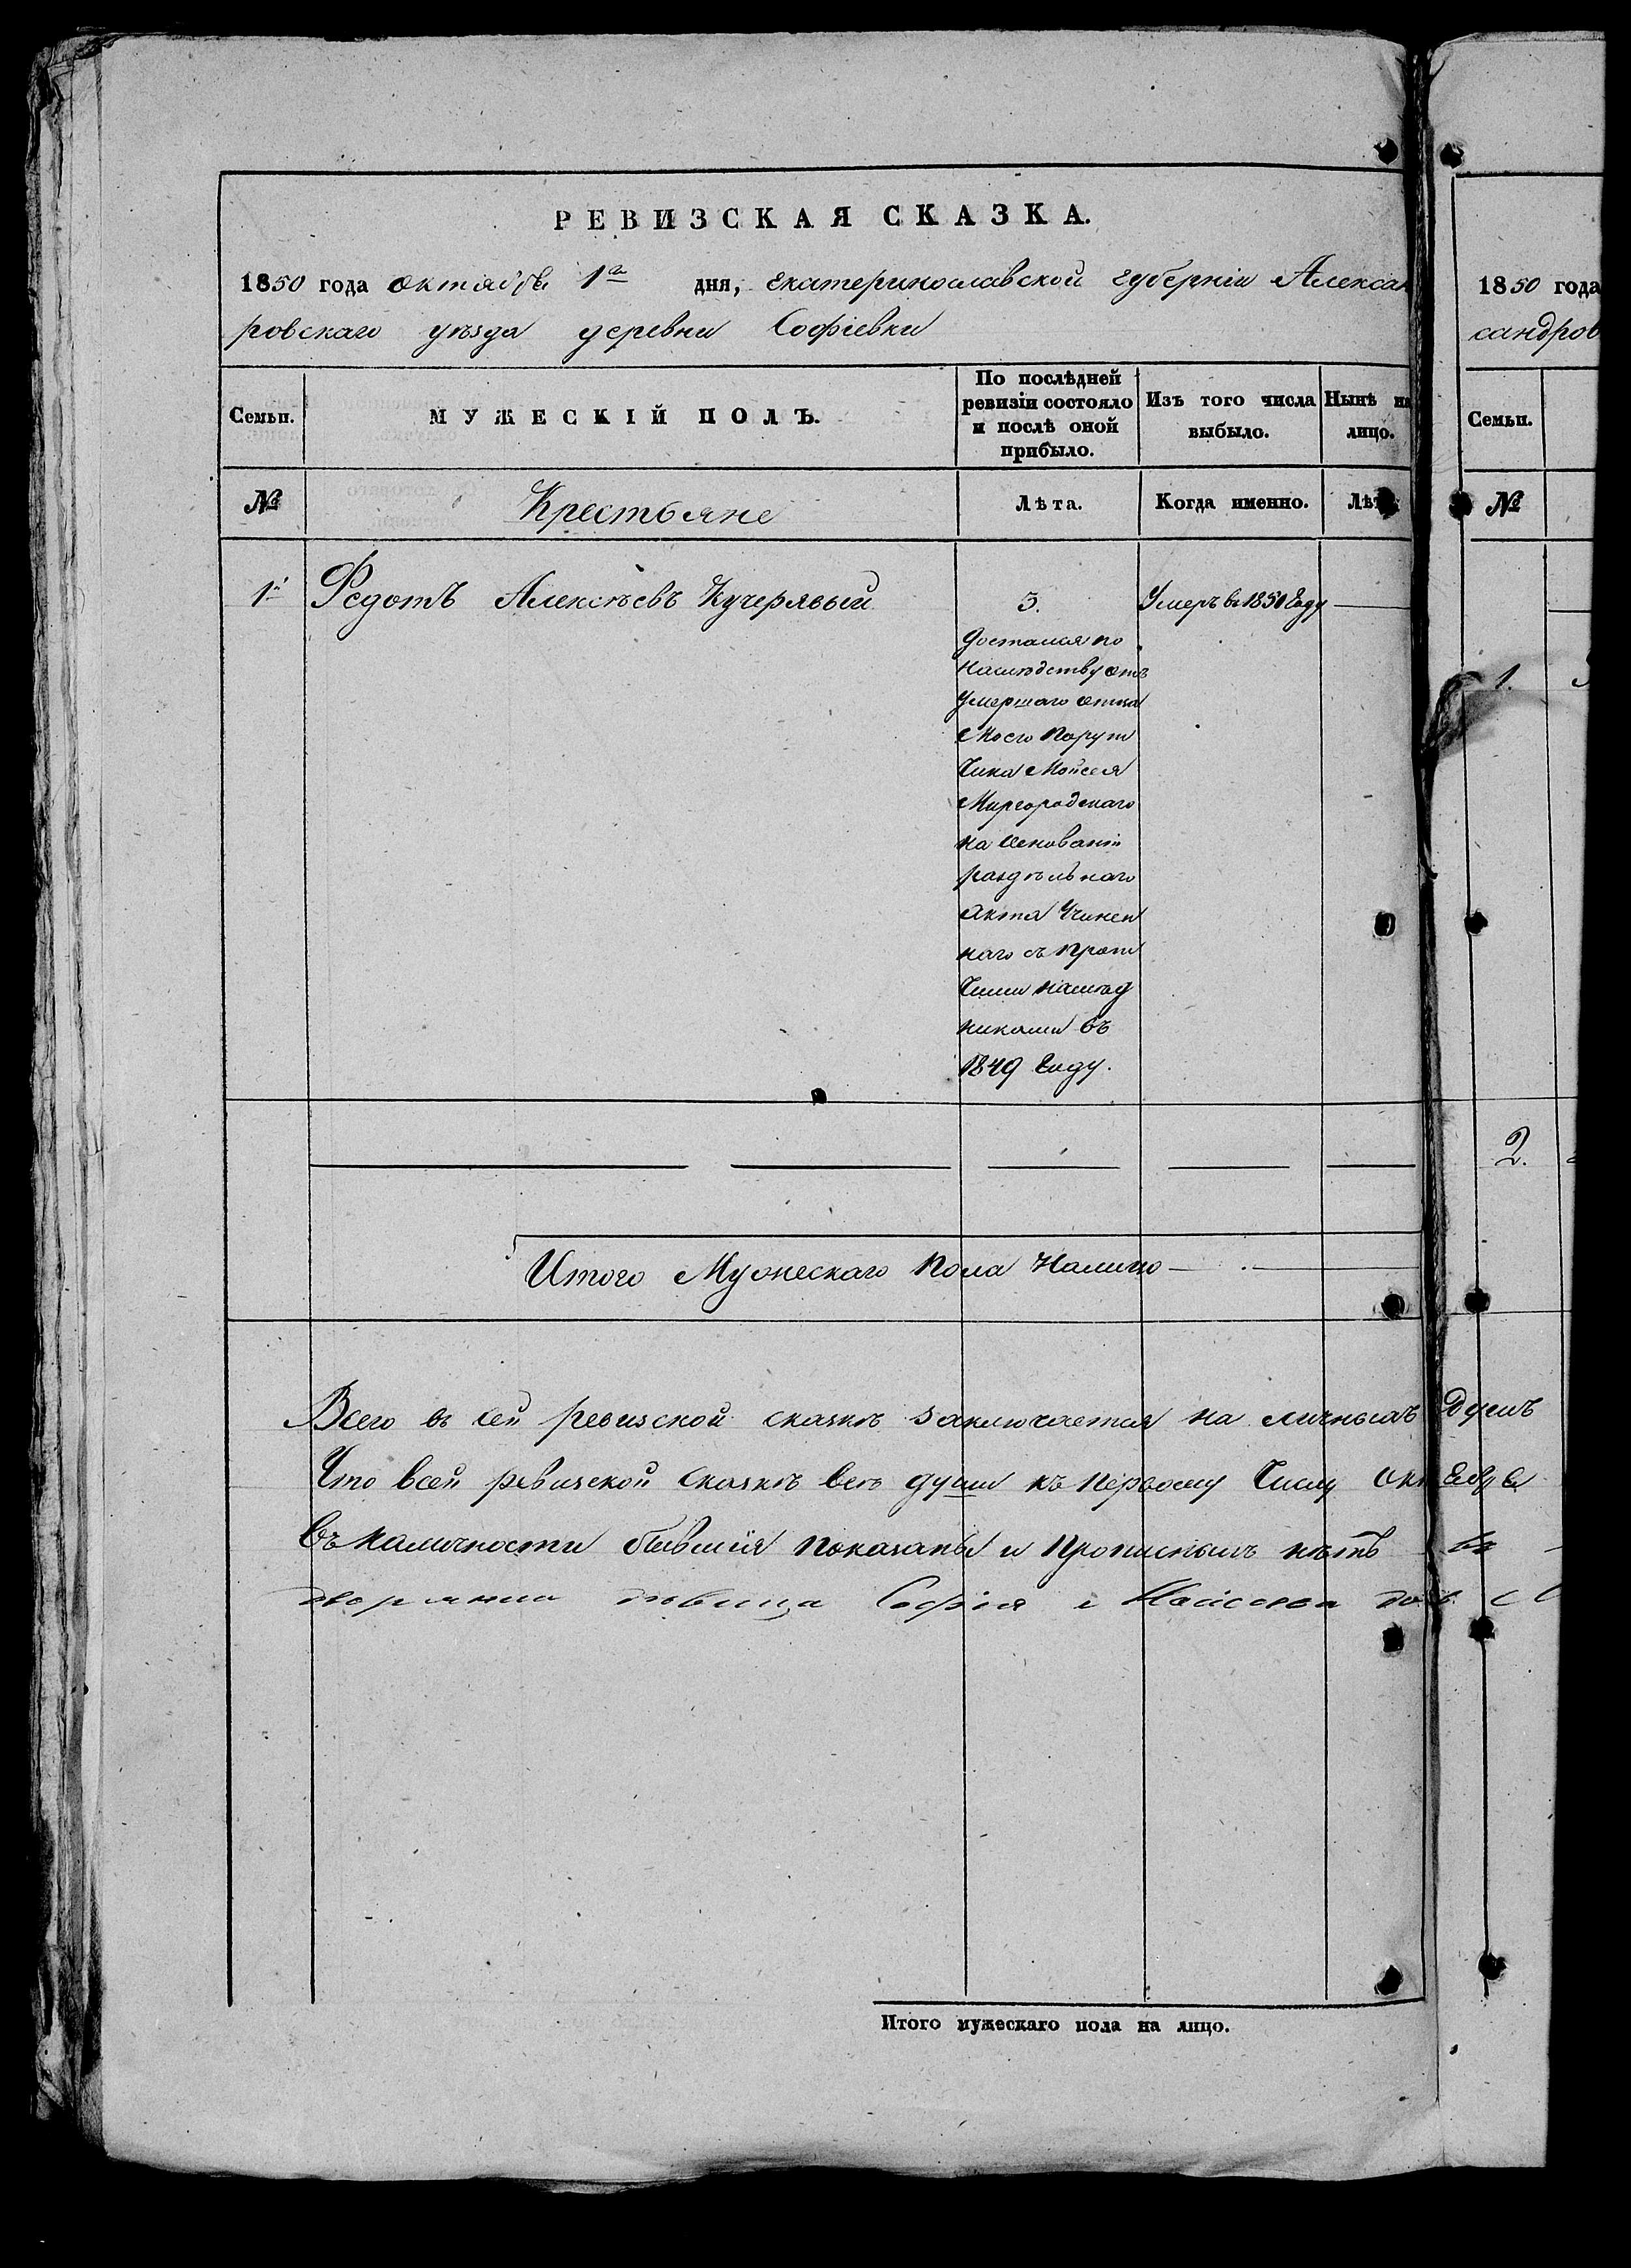 РЕВИЗСКАЯ СКАЗКА.
1850 года октября 1го дня, Екатеринославской губерніи Алексан
ровскаго уѣзда деревни Софіевки
Семьи.
МУЖЕСКІЙ ПОЛЪ.
По послѣдней ревизіи состояло и послѣ оной прибыло.
Изъ того числа выбыло.
Нынѣ на лицо.
№
Крестьяне
Лѣта.
Когда именно.
Лѣта
1й
Федотъ Алексѣевъ Кучерявый
3.
Умеръ въ 1850 Году
достался по
наслѣдству отъ
умершаго отца
моего Порут
чика Мойсея
Миргородскаго
на основаніи
раздѣльнаго
акта учинен
наго съ проти
чими наслѣд
никами въ
1849 Году.
Итого Мужескаго Пола Налицо
Всего въ сей ревизской сказкѣ заключается на личныхъ Душъ
Что всей ревизской сказкѣ всѣ души къ Первому Числу Октября
въ наличности бывшія показаны и прописныхъ нѣтъ въ
дворянка дѣвица Софія Моисеева
Итого мужескаго пола на лицо.
1850 года
сандров
Семьи.
№
1.
2.